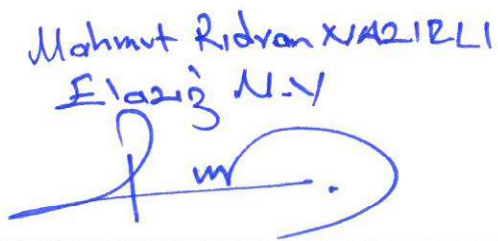 Mahmut Rıdvan NAZIRLI
Elazığ M.V